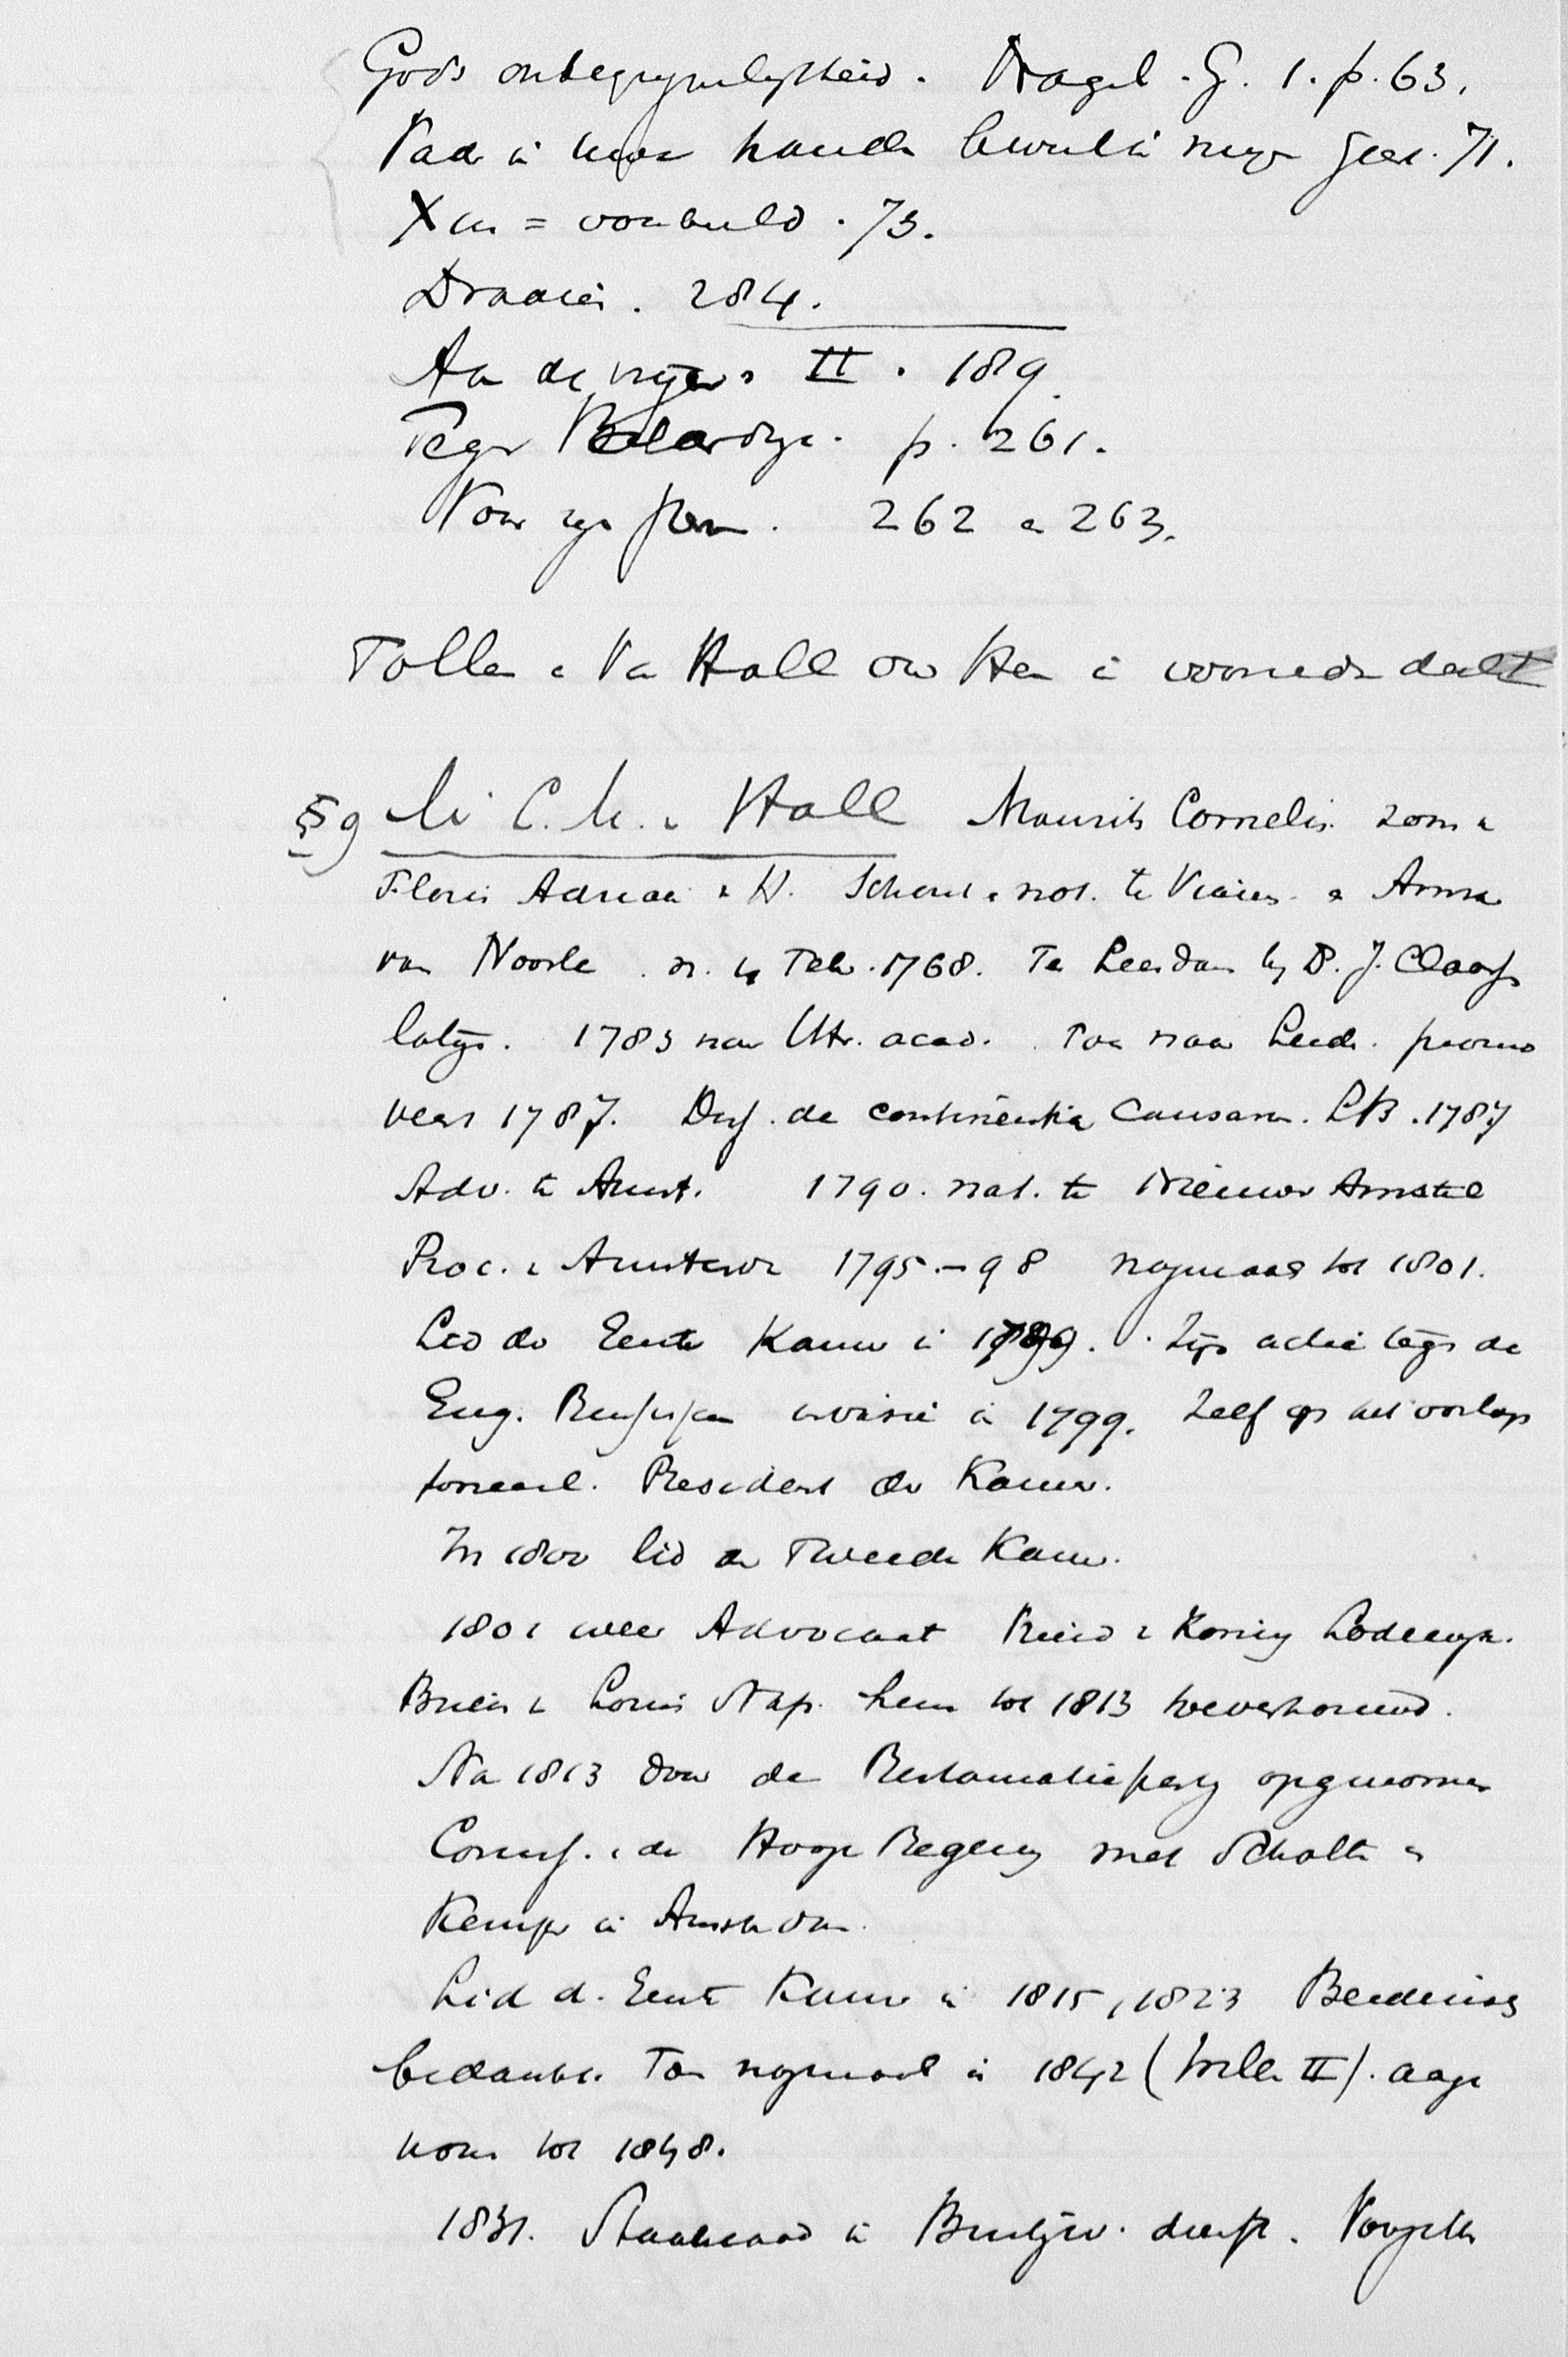 Gods onbegrypelykheid. Nagel. G. 1. p. 63.
Vader in uwe handen beveel ik mijn geest. 71.
X us = voorbeeld. 73.
284.
Aan de II. 189.
Tegen Bilderdyk. p. 261.
Voor zyn 262 en 263.
Tollens en Van Hall ow Hem in deelt
§ 9 Mr C. M. v Hall Maurits Cornelis zoon v
Floris Adriaan v H. Schout en not. te Vianen en Anna
van Noorle n. 4 Feb. 1768. Te Leerdam by D. J. Claass
latyn. 1783 naar Utr. acad. Toen naar Leid. promo
veert 1787. Diss. de continentia Causarum. LB. 1787
Adv. te Amst. 1790. not. te Nieuwer Amstel
Proc. v Amsterdam 1795–98 nogmaals tot 1801.
Lid der Eerste Kamer in 1799. Zijn actie tegen de
Eng. Russische invasie in 1799. Zelf op het oorlogs
tooneel. President der Kamer.
In 1800 lid der Tweede Kamer.
1801 weer Advocaat Vriend v Koning Lodewyk.
Brieven v Louis Nap. hem tot 1813
Na 1813 door de Restauratieparty opgenomen
Commss. v de Hooge Regering met Scholten en
Kemper in Amsterdam.
Lid d. Eerste Kamer in 1815, 1823
bedankt. Toen nogmaals in 1842 (Willem II). aange
nomen tot 1848.
1831. Staatsraad in Buitengew. dienst.